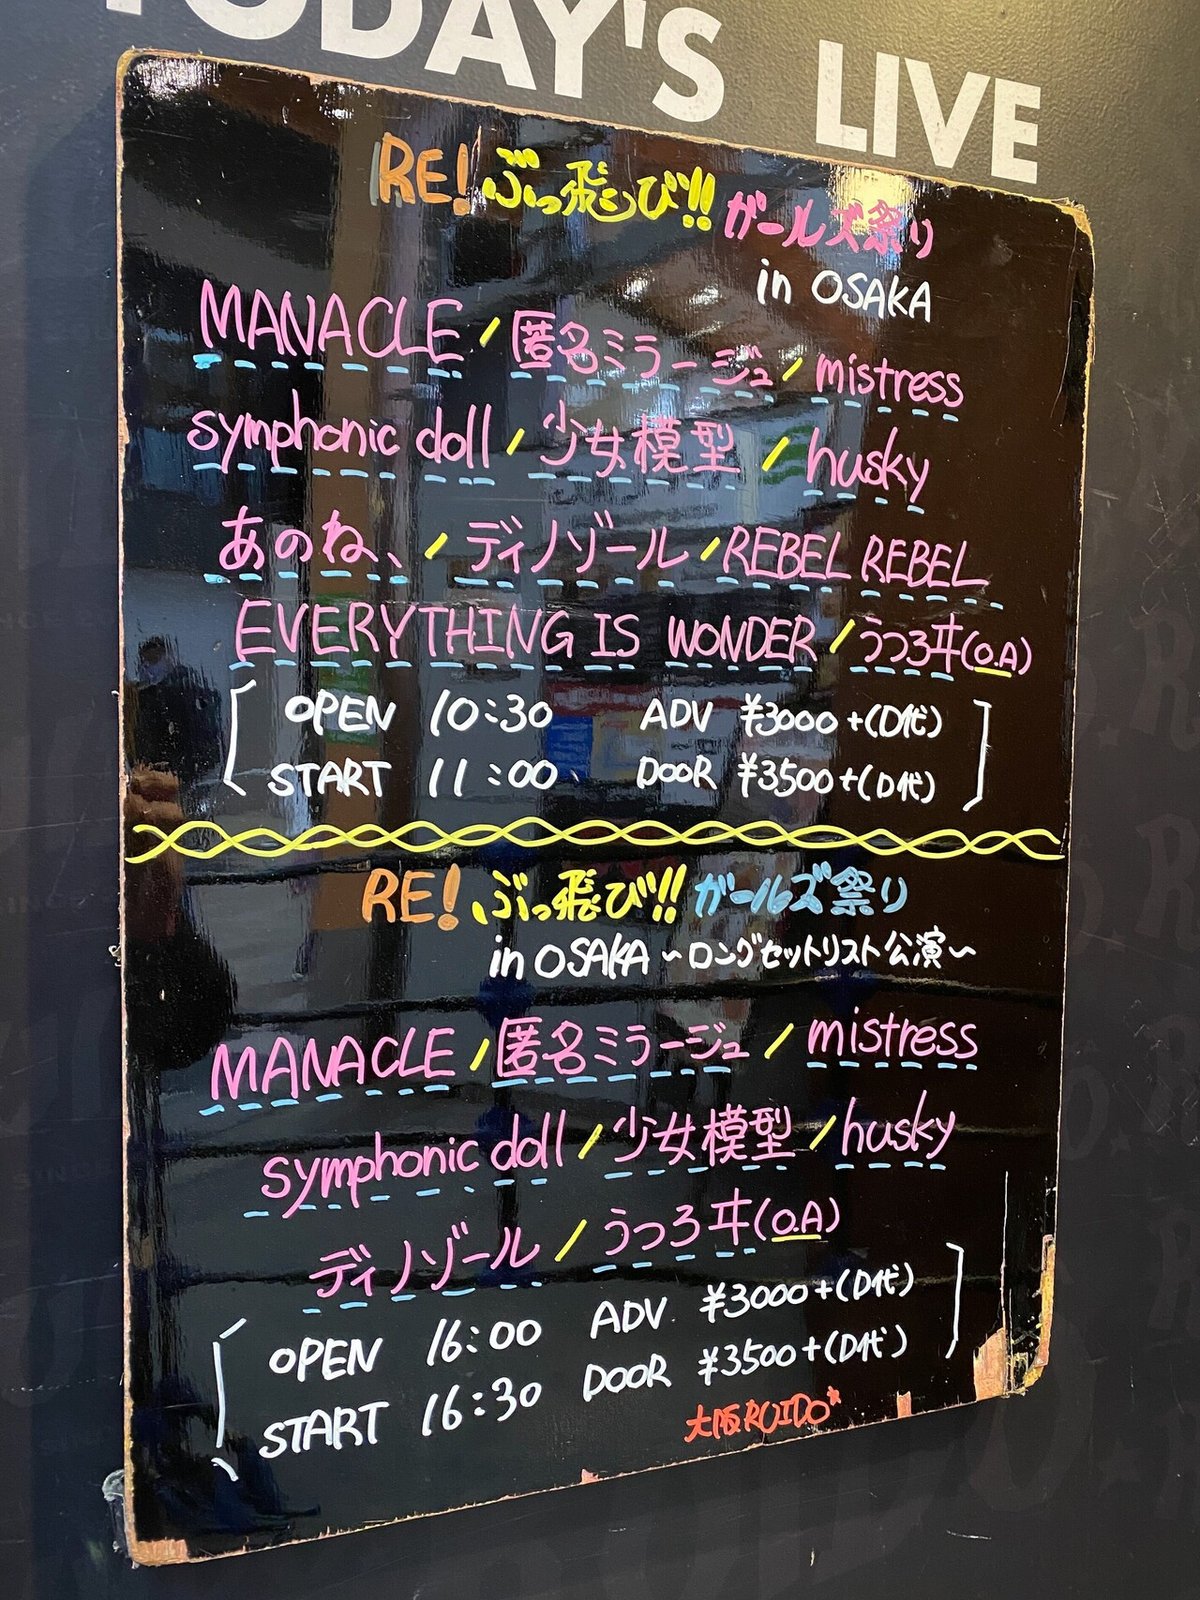 TODAY'S LIVE
RE! ぶっ飛び!! ガールズ祭り
in OSAKA
MANACLE / 匿名ミラージュ / mistress
symphonic doll / 少女模型 / husky
あのね、 / ディノゾール / REBEL REBEL
EVERYTHING IS WONDER / うつろヰ(O.A)
OPEN 10:30 ADV ¥3000+(D代)
START 11:00 DOOR ¥3500+(D代)
RE! ぶっ飛び!! ガールズ祭り
in OSAKA ~ロングセットリスト公演~
MANACLE / 匿名ミラージュ / mistress
symphonic doll / 少女模型 / husky
ディノゾール / うつろヰ(O.A)
OPEN 16:00 ADV. ¥3000+(D代)
START 16:30 DOOR ¥3500+(D代)
大阪RUIDO*